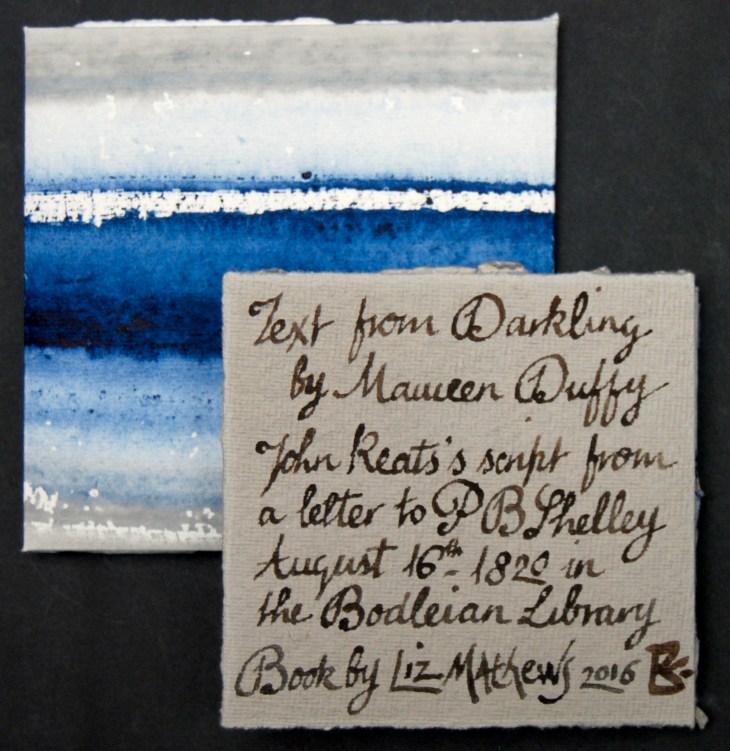 Text from Darkling
by Maureen Duffy
John Keats's script from
a letter to P B Shelley
August 16th 1820 in
the Bodleian Library
Book by Liz Mathews 2016